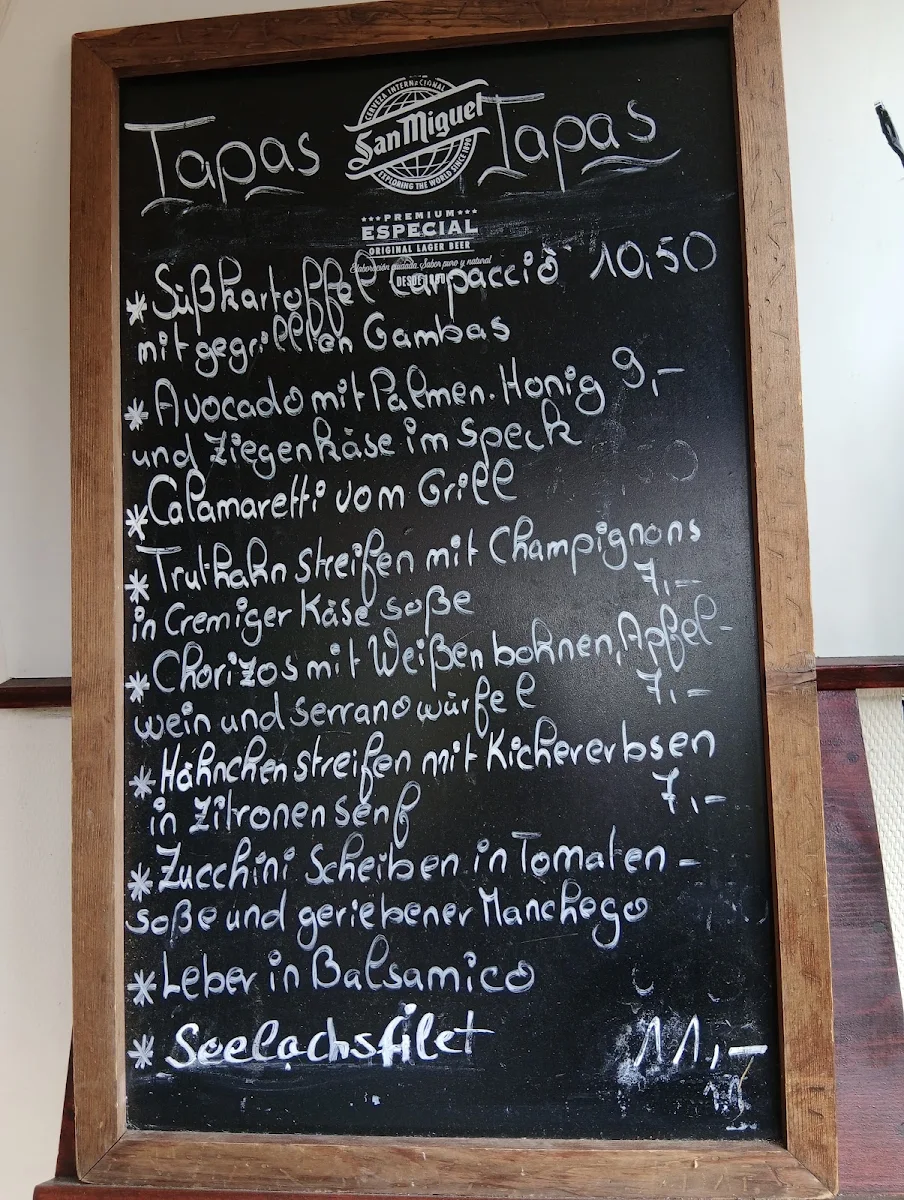 Tapas Tapas
CERVEZA INTERNACIONAL
San Miguel
EXPLORING THE WORLD SINCE 1890
PREMIUM
ESPECIAL
ORIGINAL LAGER BEER
Elaboración cuidada. Sabor puro y natural
DESDE 1890
* Süßkartoffel Carpaccio 10,50
mit gegrillten Gambas
* Avocado mit Palmen. Honig 9,-
und Ziegenkäse im Speck
* Calamaretti vom Grill
* Truthahn streifen mit Champignons
in Cremiger Käse soße 7,-
* Chorizos mit Weißen bohnen, Apfel-
wein und serrano würfel 7,-
* Hähnchen streifen mit Kichererbsen
in Zitronen senf 7,-
* Zucchini Scheiben in Tomaten-
soße und geriebener Manchego
* Leber in Balsamico
* Seelachsfilet 11,-